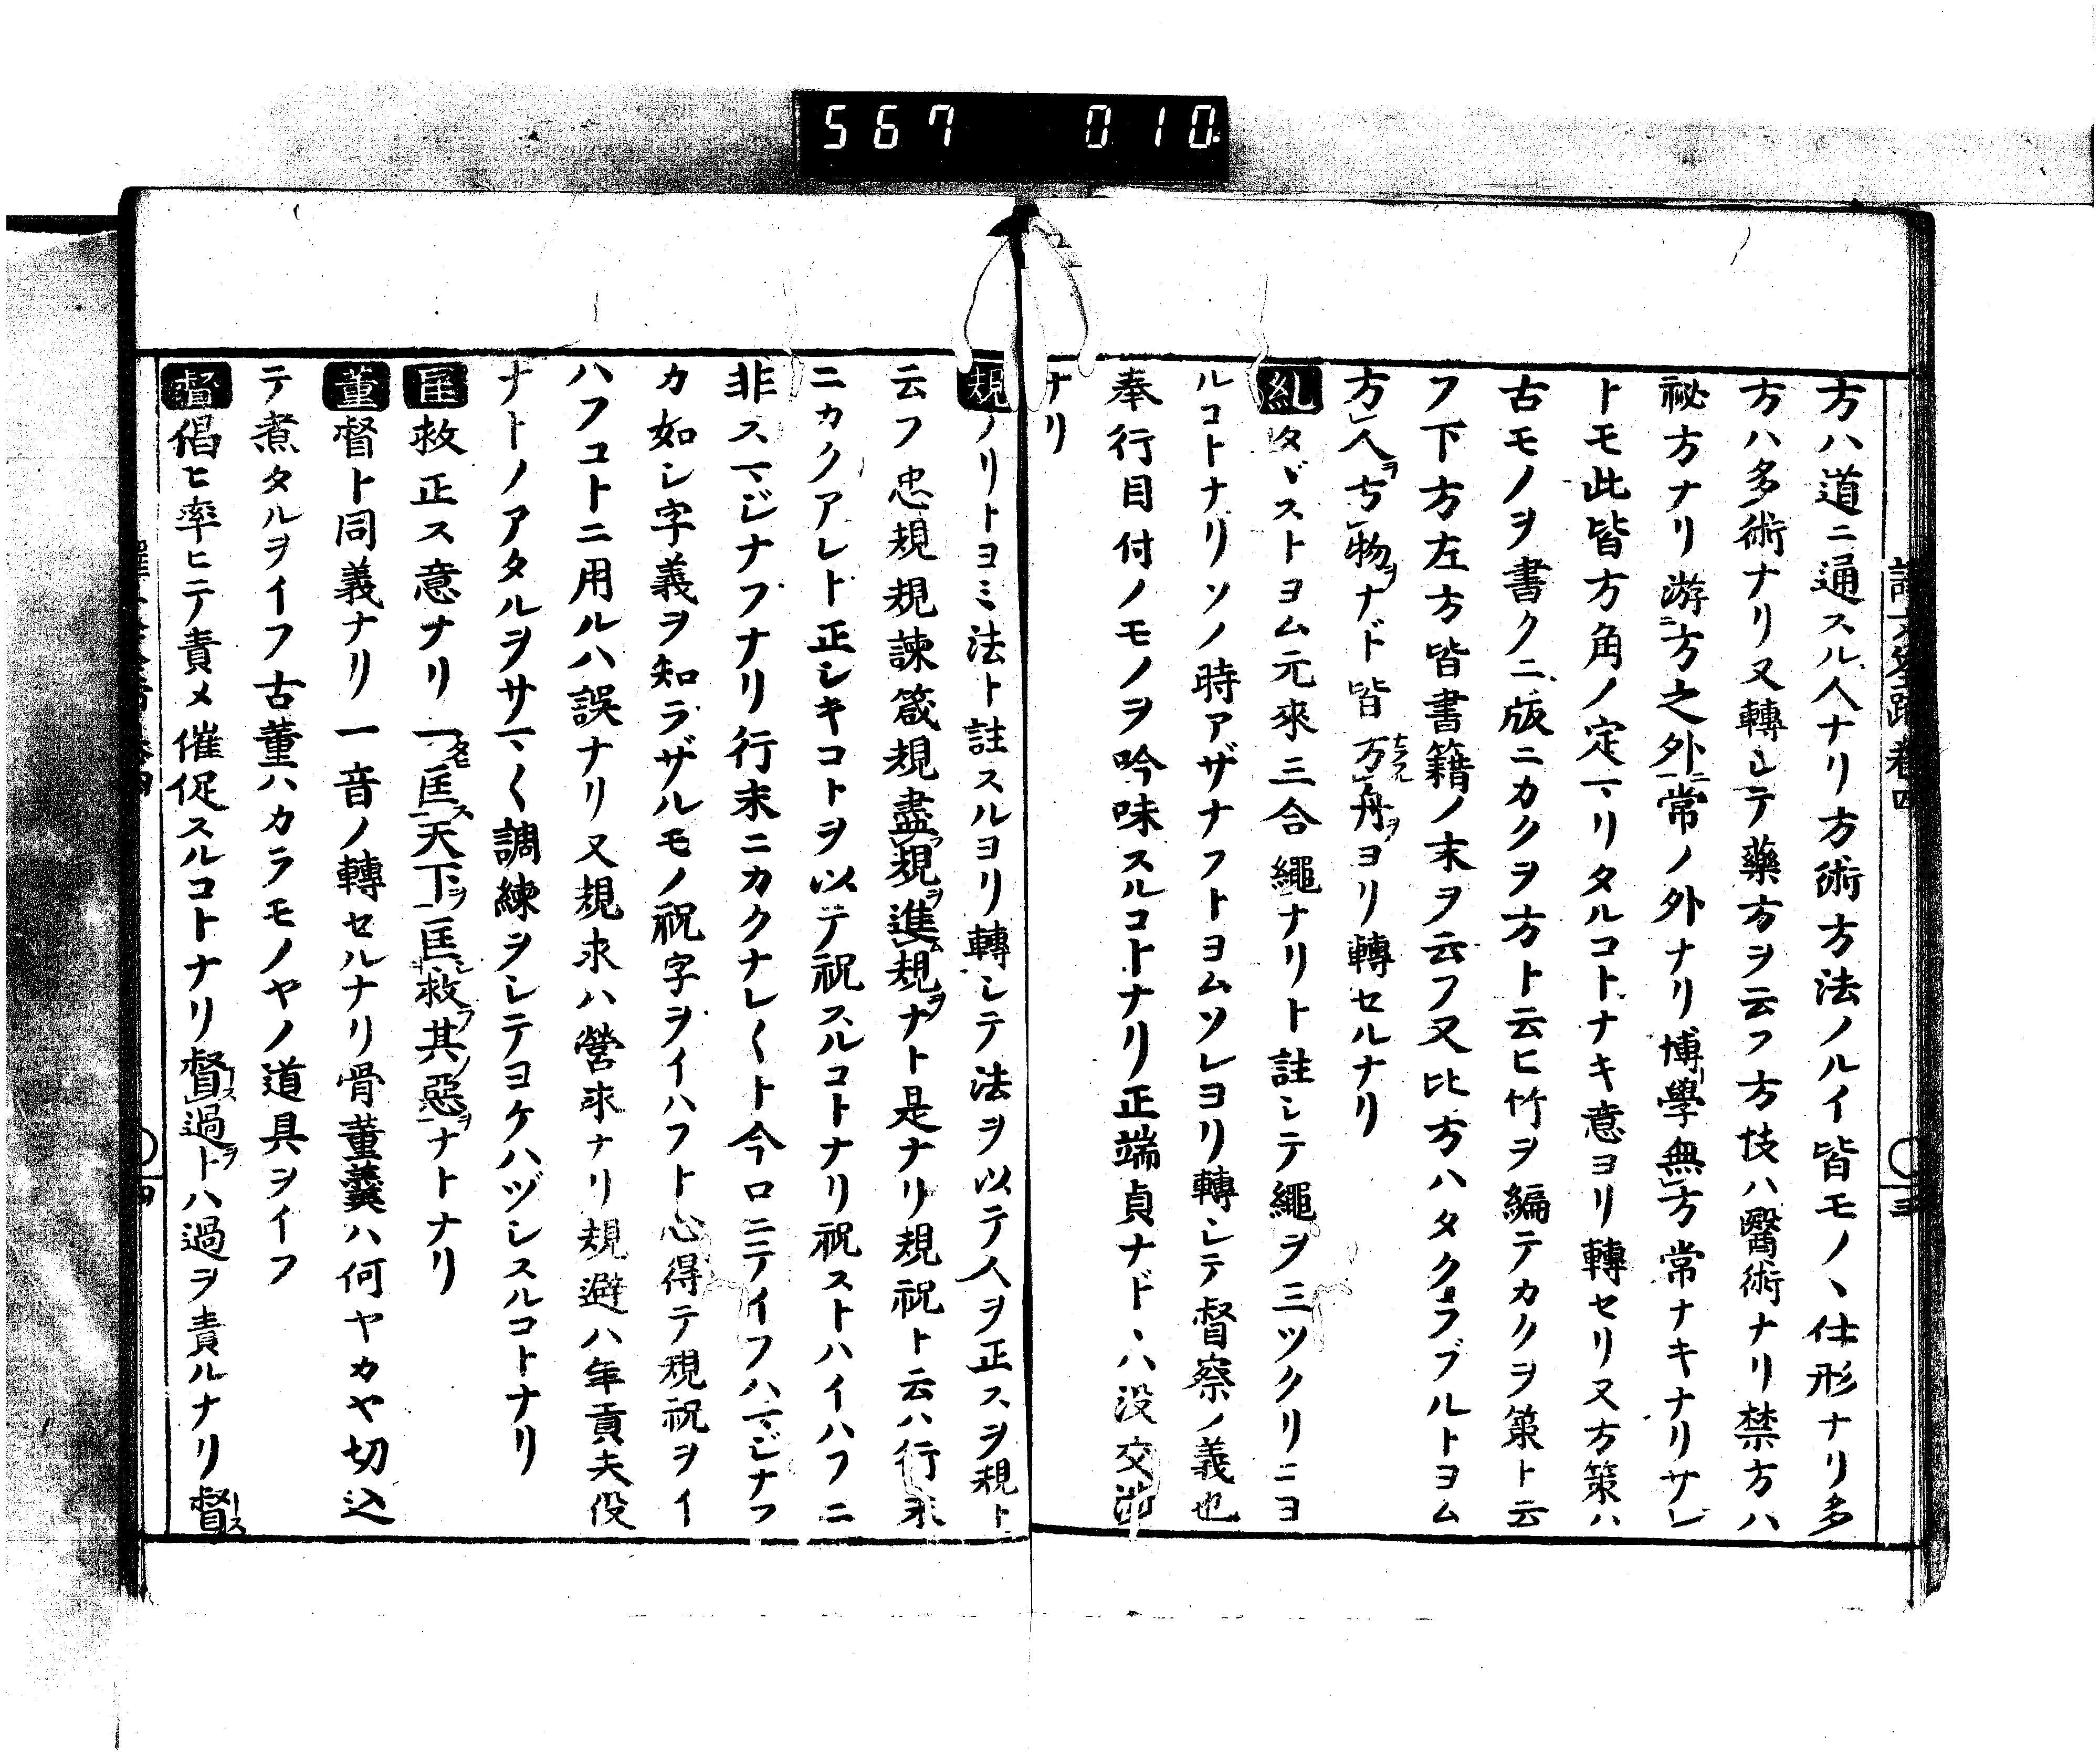 567 010
方ハ道ニ通スル人ナリ方術方法ノルイ皆モノヽ仕形ナリ多
方ハ多術ナリ又轉シテ藥方ヲ云フ方技ハ醫術ナリ禁方ハ
祕方ナリ游方之外常ノ外ナリ博學無方常ナキナリサレ
トモ此皆方角ノ定マリタルコトナキ意ヨリ轉セリ又方策ハ
古モノヲ書クニ版ニカクヲ方ト云ヒ竹ヲ編テカクヲ策ト云
フ下方左方皆書籍ノ末ヲ云フ又比方ハタクラブルトヨム
方人ヲ方物ヲナド皆方舟ヲヨリ轉セルナリ
糺タヾストヨム元來三合繩ナリト註シテ繩ヲ三ツクリニヨ
ルコトナリソノ時アザナフトヨムソレヨリ轉シテ督察ノ義也
奉行目付ノモノヲ吟味スルコトナリ正端貞ナドヽハ没交渉
ナリ
規ノリトヨミ法ト註スルヨリ轉シテ法ヲ以テ人ヲ正スヲ規ト
云フ忠規規諫箴規盡規ヲ進規ヲナト是ナリ規祝ト云ハ行末
ニカクアレト正シキコトヲ以テ祝スルコトナリ祝ストハイハフニ
非スマジナフナリ行末ニカクナレ〱ト今ロニテイフハマジナフ
カ如シ字義ヲ知ラザルモノ祝字ヲイハフト心得テ規祝ヲイ
ハフコトニ用ルハ誤ナリ又規求ハ營求ナリ規避ハ年貢夫役
ナトノアタルヲサマ〱調練ヲシテヨケハヅシスルコトナリ
匡救正ス意ナリ一匡ス天下ヲ匡救フ其ノ惡ヲナトナリ
董督ト同義ナリ一音ノ轉セルナリ骨董羹ハ何ヤカヤ切込
テ煮タルヲイフ古董ハカラモノヤノ道具ヲイフ
督倡ヒ率ヒテ責メ催促スルコトナリ督ス過ヲトハ過ヲ責ルナリ督ス